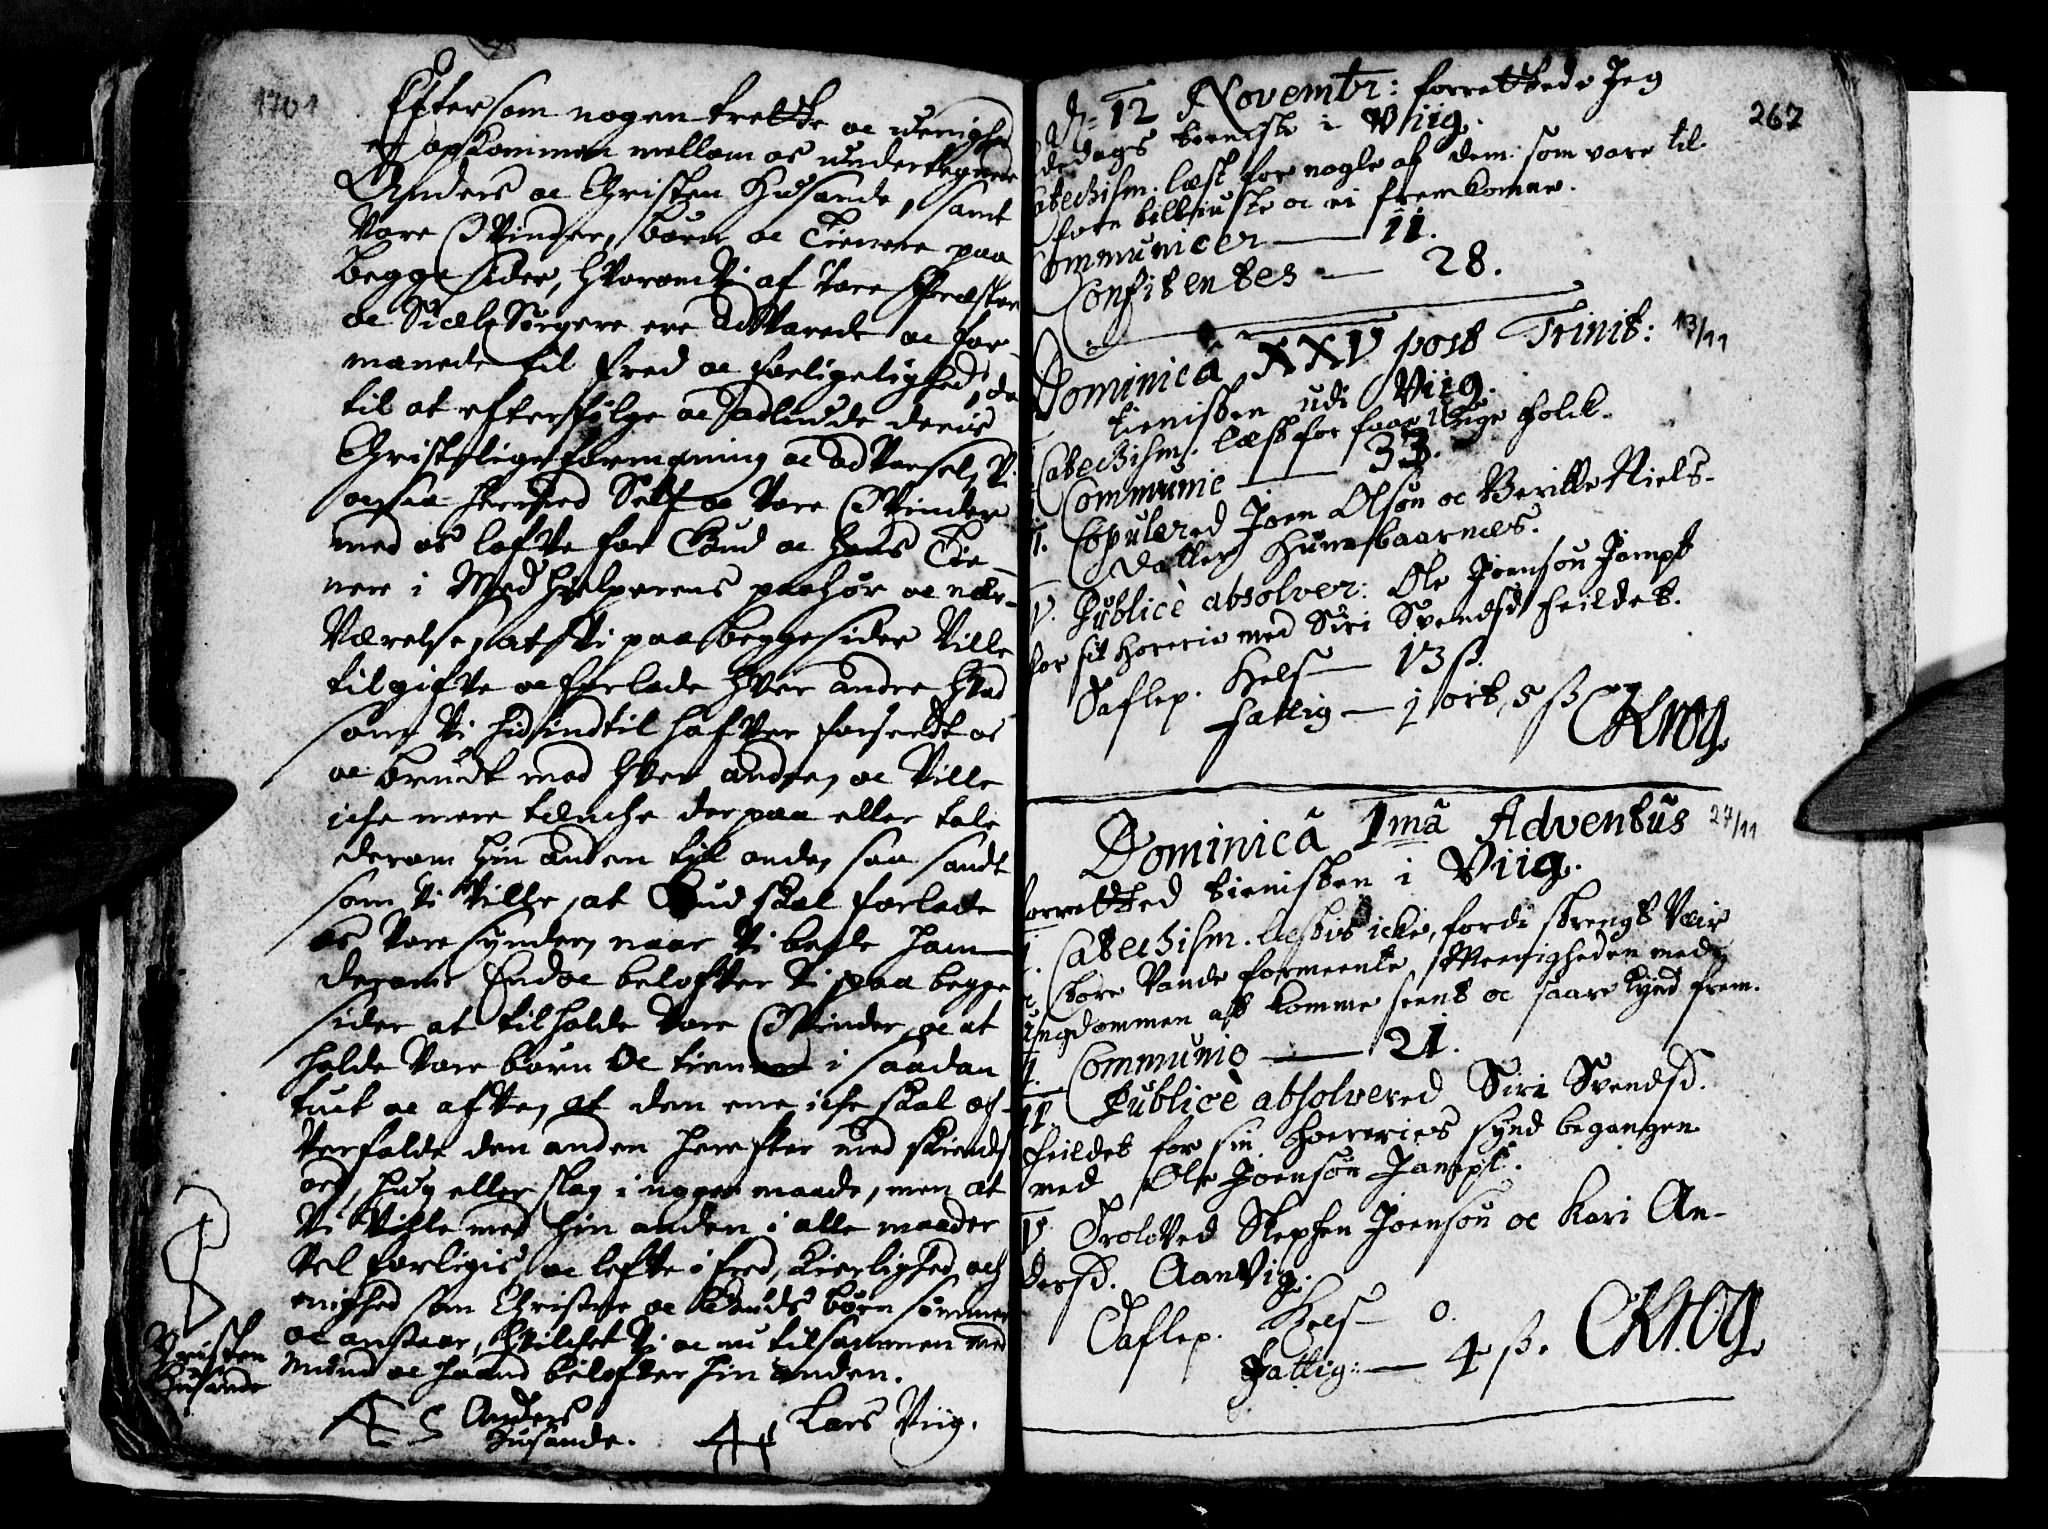 1701
Eftersom nogen trette oc uenighed
er opkommen mellom os undertegnede
Anders oc Christen Husande, samt
Vore Qvinder, børn oc Tienere paa
begge sider, hvorom Vi af Vore Præster
oc Siæle Sørgere ere adVarede oc for-
manede til fred oc forligelighed, da
til at efterfølge oc adlyde deris
Christelige formaning oc adVarsel, Vi
ocsaa herved Self oc Vore Qvinder
med os lofve for Gud oc hans Tie-
nere i Medhielperens paahør oc nær-
Værelse, at Vi paa begge sider Ville
tilgifve oc forlade hver andre hvad
som Vi hid indtil hafver forseedt os
oc brudt mod hver andre, oc Ville
iche mere tænche der paa eller tale
derom hin anden til onde, saa sandt
som Vi Ville, at Gud skal forlade
os Vore synder, naar Vi bede ham
derom. End oc belofver Vi paa begge
sider at tilholde Vore Qvinder, oc at
holde Vore børn oc tienere i saadan
tuct oc afve, at den ene iche skal of-
verfalde den anden herefter med skiends
ord, hug eller slag i nogen maade, men at
Vi Ville med hin anden i alle maader
Vel forligis oc lefve i fred, kierlighed och
enighed som Christne oc Guds børn sømmer
oc anstaar, hvilchet Vi oc nu tilsammen med
mund oc haand belofver hin anden.
Christen
Husande
AS Anders
Husande.
Lars Viig.
267
D. 12 Novembr: forrettede Jeg
dedags tieniste i Viig.
Catechism. læst for nogle af dem som vare til
forn tilsiuste oc ei fremkomne.
Communicer — 11.
Confitentes — 28.
Dominica XXV post Trinit: 13/11
tienisten udi Viig.
Catechism. læst for faae unge folck.
Communic — 33.
Copulered Joen Olsøn oc Beritte Niels-
datter Hunsbaarnes.
V. Publicè absolver: Ole Joensøn Jampt
for sit horerie med Siri Svendsd Feildet.
Taflep. Kels — 13 s.
Fattig — 1 ort, 5 s CKrog
Dominicâ 1mâ Adventûs 27/11
forretted tienisten i Viig.
Catechism. læstis icke, fordi strengt Veir
oc store Vande formeente Meenigheden med
ungdommen at komme seent oc saare tynd frem.
Communic — 21.
IV. Publicè absolvered Siri Svendsd.
Feildet for sin Horeries synd begangen
med Ole Joensøn Jampt.
V. Trolóved Stephen Joensøn oc Kari An-
dersd. Aanvig.
Taflep. Kels — 0.
Fattig: — 4 s. CKrog